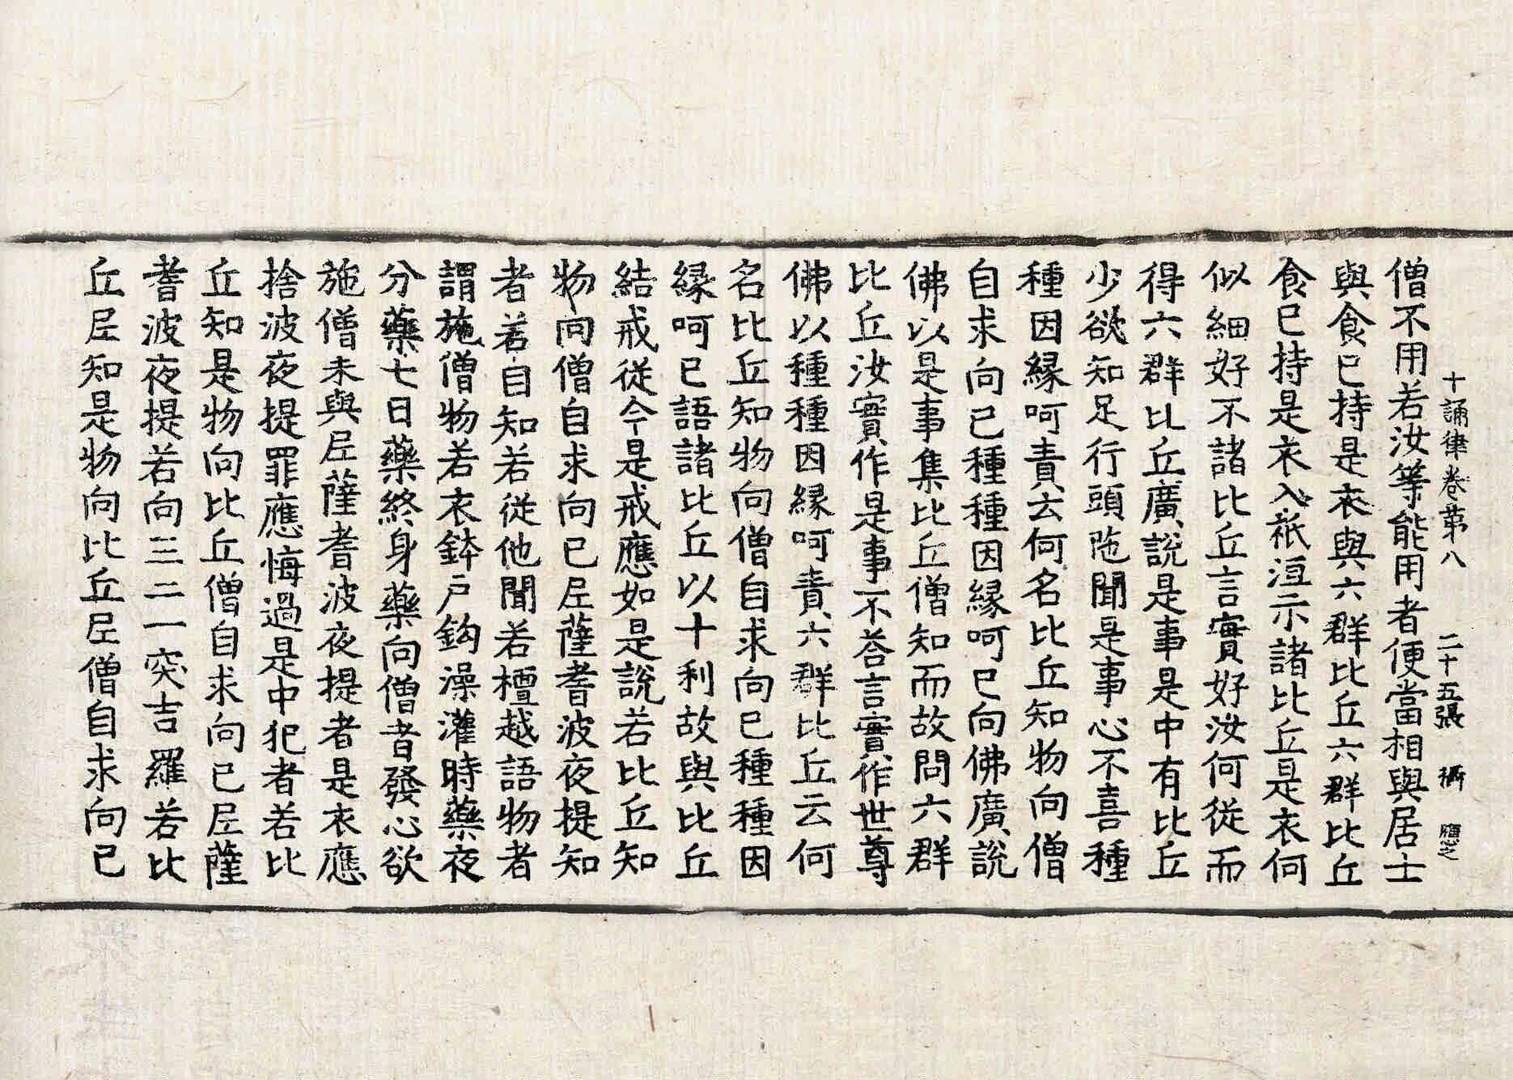 十誦律卷第八 二十五張
僧不用若汝等能用者便當相與居士
與食已持是衣與六群比丘六群比丘
食已持是衣入祇洹示諸比丘是衣何
似細好不諸比丘言實好汝何從而
得六群比丘廣說是事是中有比丘
少欲知足行頭陁聞是事心不喜種
種因緣呵責云何名比丘知物向僧
自求向已種種因緣呵已向佛廣說
佛以是事集比丘僧知而故問六群
比丘汝實作是事不荅言實作世尊
佛以種種因緣呵責六群比丘云何
名比丘知物向僧自求向已種種因
緣呵已語諸比丘以十利故與比丘
結戒從今是戒應如是說若比丘知
物向僧自求向已尼薩耆波夜提知
者若自知若從他聞若檀越語物者
謂施僧物若衣鉢戶鈎澡灌時藥夜
分藥七日藥終身藥向僧者發心欲
施僧未與尼薩耆波夜提者是衣應
捨波夜提罪應悔過是中犯者若比
丘知是物向比丘僧自求向已尼薩
耆波夜提若向三二一突吉羅若比
丘尼知是物向比丘尼僧自求向已